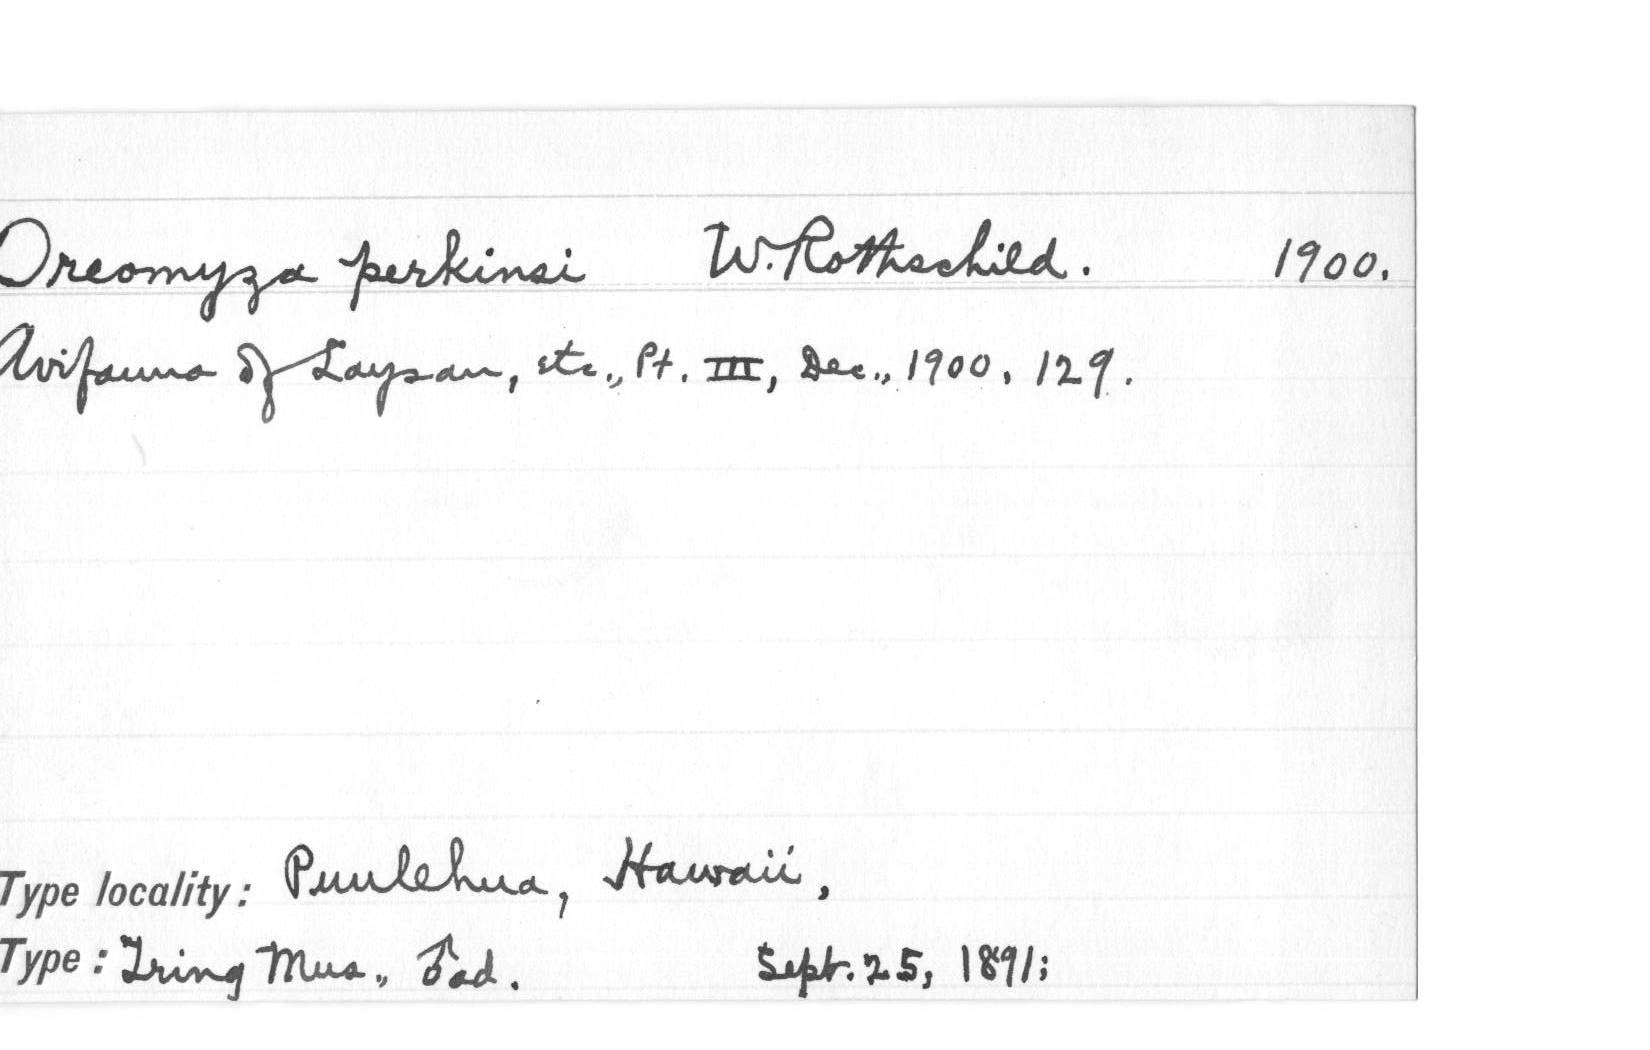 Oreomyza perkinsi W. Rothschild. 1900.
Avifauna of Laysan, etc., Pt. III, Dec., 1900, 129.
Type locality: Puulehua, Hawaii,
Type: Tring Mus., ♂ad. Sept. 25, 1891;